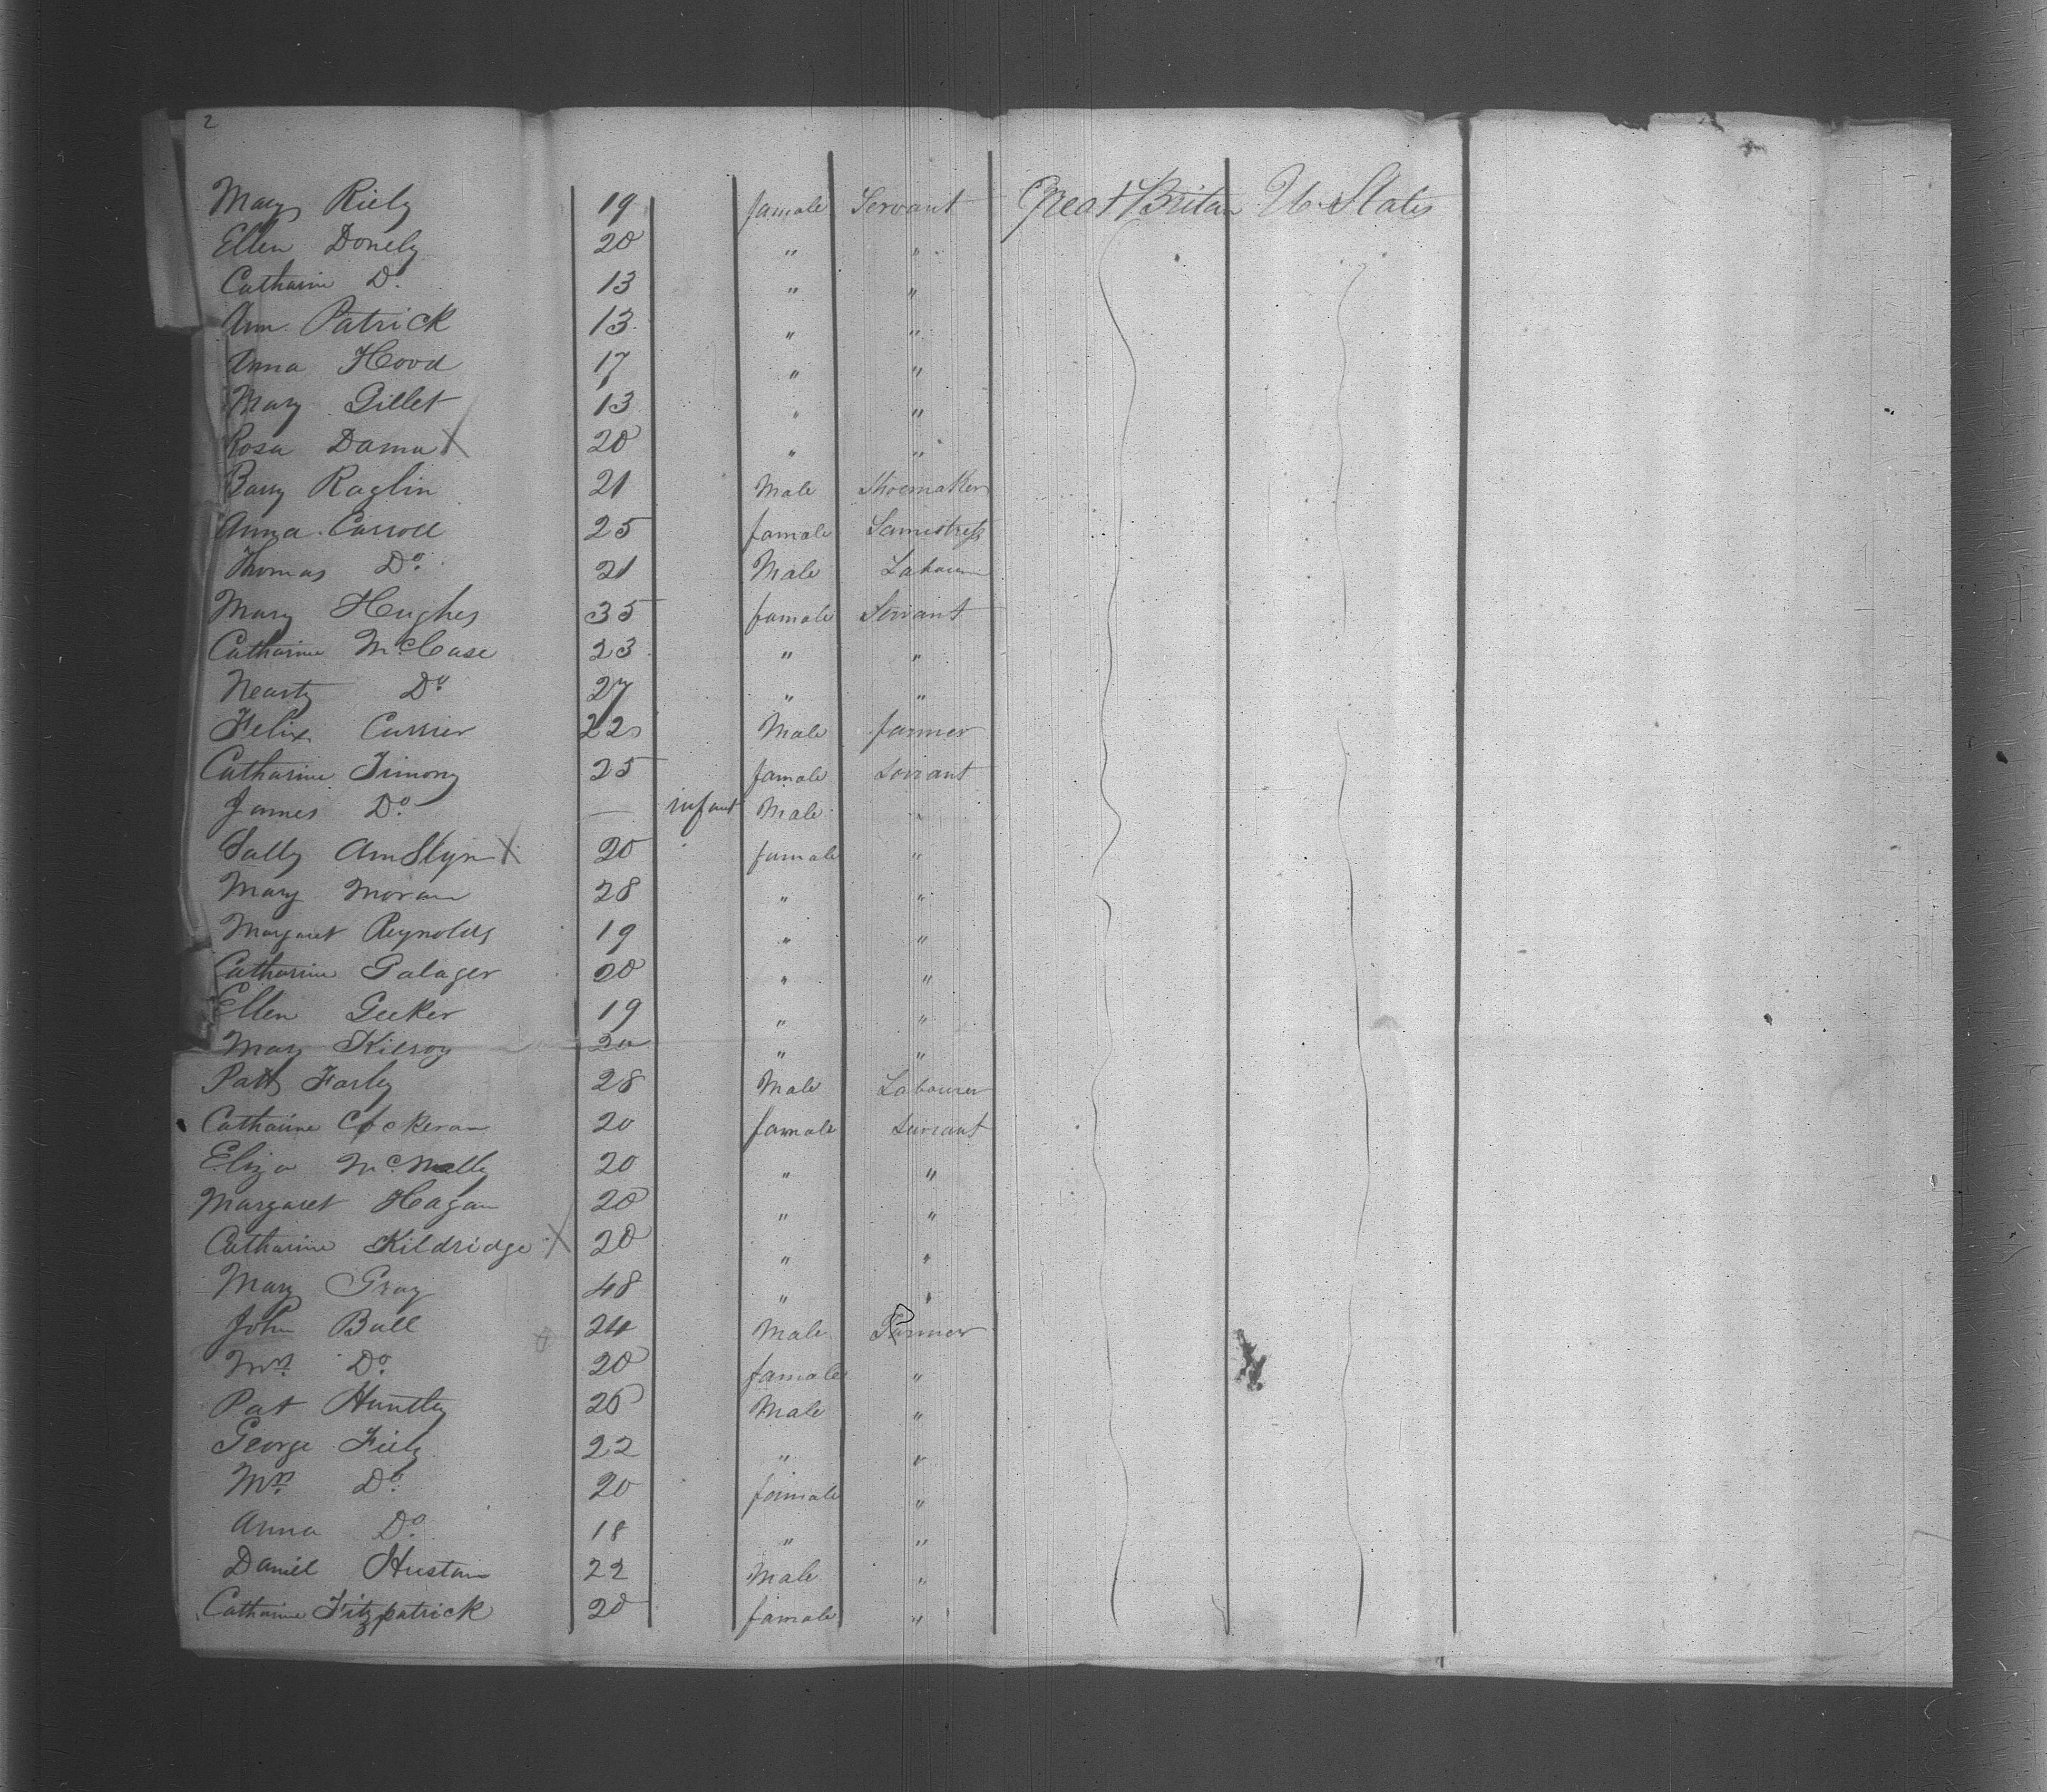 2
Mary Riely 19 famale Servant Great Britan U. States
Ellen Donely 20 " "
Catharine Do. 13 " "
Ann. Patrick 13 " "
Anna Hood 17 " "
Mary Gillet 13 " "
Rosa Dama X 20 " "
Barry Raglin 21 Male Shoemaker
Anna Carroll 25 famale Samestress
Thomas Do. 21 Male Labourer
Mary Hughes 35 famale Servant
Catharine McCase 23 " "
Nearty Do 27 " "
Felix Currier 22 Male farmer
Catharine Timony 25 famale Servant
James Do — infant Male "
Sally AmStyn X 20 famale "
Mary Moran 28 " "
Margaret Reynolds 19 " "
Catharine Galager 20 " "
Ellen Geeker 19 " "
Mary Kilroy 20 " "
Patt Farley 28 Male Labourer
Catharine Cockeran 20 famale Servant
Eliza McNally 20 " "
Margaret Hagan 20 " "
Catharine Kildridge X 20 " "
Mary Gray 48 " "
John Ball 24 Male Farmer
Mrs. Do. 20 famale "
Pat Huntley 26 Male "
George Fiely 22 " "
Mrs. Do. 20 famale "
Anna Do. 18 " "
Daniel Hustain 22 Male "
Catharine Fitzpatrick 20 famale "